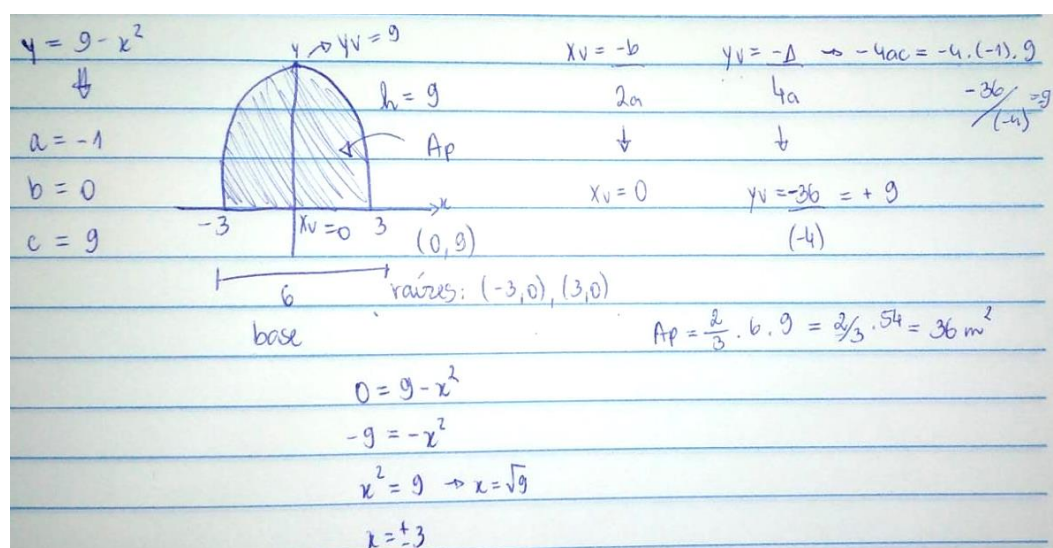 y = 9 - x²
⇓
a = -1
b = 0
c = 9
y → yv = 9
h = 9
Ap
x
-3
xv = 0
3
(0,9)
6
base
raízes: (-3,0), (3,0)
xv = -b
2a
↓
xv = 0
yv = -Δ → -4ac = -4.(-1).9
4a
-36/(-4) = 9
↓
yv = -36 = + 9
(-4)
Ap = 2/3 . 6 . 9 = 2/3 . 54 = 36 m²
0 = 9 - x²
-9 = -x²
x² = 9 → x = √9
x = ±3